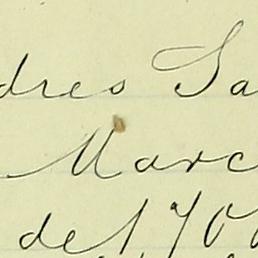 dres Sa
Marc
de 170